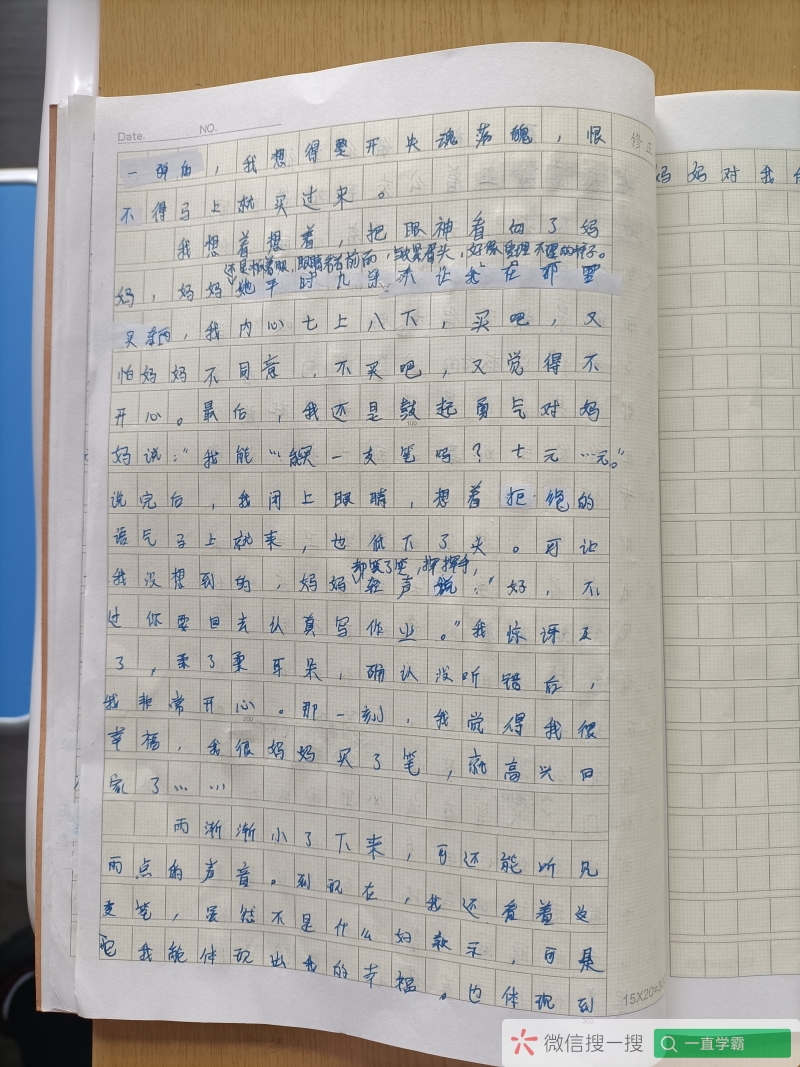 Date.
NO.
修正
一弹的，我想得要开失魂荡魄，恨
不得马上就买过来。
我想着想着，把眼神看向了妈
还是板着眼，眼睛看着前面，皱着眉头，好像要理不理的样子。
妈，妈妈她平时九余决让我在那里
买东西，我内心七上八下，买吧，又
怕妈妈不同意，不买吧，又觉得不
开心。最后，我还是鼓起勇气对妈
妈说："我能…能买一支笔吗？七元…元。"
说完后，我闭上眼睛，想着拒绝的
语气马上就来，也低下了头。可让
却笑了笑，挥挥手，
我没想到的，妈妈轻声说："好，不
过你要回去认真写作业。"我惊讶互
了，柔了柔耳朵，确认没听错后，
我非常开心。那一刻，我觉得我很
幸福，我很妈妈买了笔，就高兴回
家了……
雨渐渐小了下来，可还能听见
雨点的声音。到现在，我还看着这
支笔，虽然不是什么好款式，可是
它我能体现出我的幸福。也体现到
妈妈对我
100
200
15X20=3
微信搜一搜
一直学霸